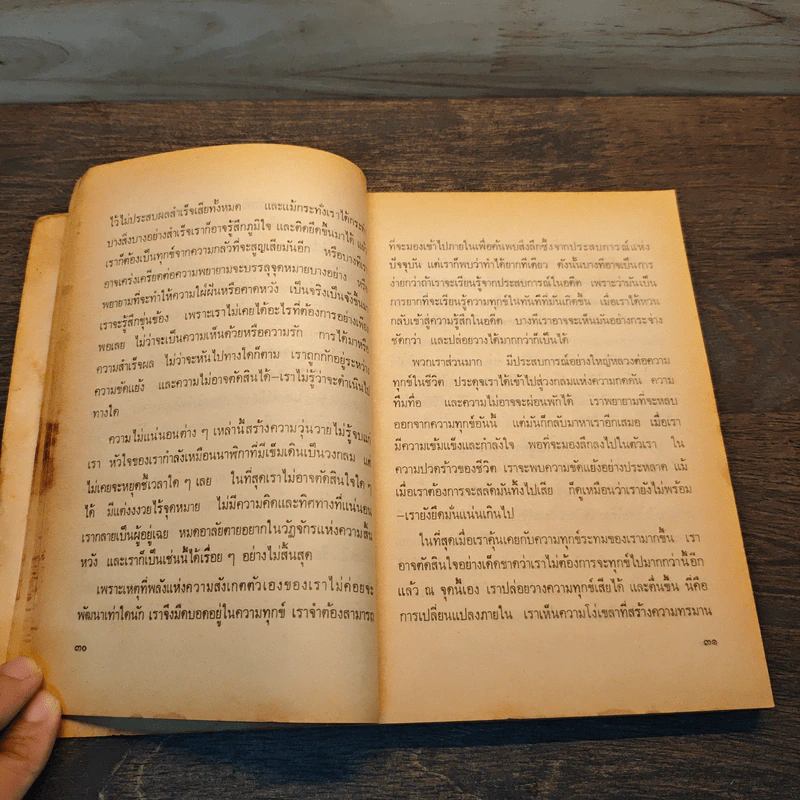 ไว้ไม่ประสบผลสำเร็จเสียทั้งหมด และแม้กระทั่งเราได้กระทำ
บางสิ่งบางอย่างสำเร็จเราก็อาจรู้สึกภูมิใจ และคิดยึดขึ้นมาได้ แล้ว
เราก็ต้องเป็นทุกข์จากความกลัวที่จะสูญเสียมันอีก หรือบางทีเรา
อาจเคร่งเครียดต่อความพยายามจะบรรลุจุดหมายบางอย่าง หรือ
พยายามที่จะทำให้ความใฝ่ฝันหรือคาดหวัง เป็นจริงเป็นจังขึ้นมา
เราจะรู้สึกขุ่นข้อง เพราะเราไม่เคยได้อะไรที่ต้องการอย่างเพียง
พอเลย ไม่ว่าจะเป็นความเห็นด้วยหรือความรัก การได้มาหรือ
ความสำเร็จผล ไม่ว่าจะหันไปทางใดก็ตาม เราถูกกักอยู่ระหว่าง
ความขัดแย้ง และความไม่อาจตัดสินได้–เราไม่รู้ว่าจะดำเนินไป
ทางใด
ความไม่แน่นอนต่าง ๆ เหล่านี้สร้างความวุ่นวายไม่รู้จบแก่
เรา หัวใจของเรากำลังเหมือนนาฬิกาที่มีเข็มเดินเป็นวงกลม แต่
ไม่เคยจะหยุดชี้เวลาใด ๆ เลย ในที่สุดเราไม่อาจตัดสินใจใด ๆ
ได้ มีแต่งงงวยไร้จุดหมาย ไม่มีความคิดและทิศทางที่แน่นอน
เรากลายเป็นผู้อยู่เฉย หมดอาลัยตายอยากในวัฏจักรแห่งความสิ้น
หวัง และเราก็เป็นเช่นนี้ได้เรื่อย ๆ อย่างไม่สิ้นสุด
เพราะเหตุที่พลังแห่งความสังเกตตัวเองของเราไม่ค่อยจะ
พัฒนาเท่าใดนัก เราจึงมืดบอดอยู่ในความทุกข์ เราจำต้องสามารถ
๓๐
ที่จะมองเข้าไปภายในเพื่อค้นพบสิ่งลึกซึ้งจากประสบการณ์แห่ง
ปัจจุบัน แต่เราก็พบว่าทำได้ยากทีเดียว ดังนั้นบางทีอาจเป็นการ
ง่ายกว่าถ้าเราจะเรียนรู้จากประสบการณ์ในอดีต เพราะว่ามันเป็น
การยากที่จะเรียนรู้ความทุกข์ในทันทีที่มันเกิดขึ้น เมื่อเราได้หวน
กลับเข้าสู่ความรู้สึกในอดีต บางทีเราอาจจะเห็นมันอย่างกระจ่าง
ชัดกว่า และปล่อยวางได้มากกว่าก็เป็นได้
พวกเราส่วนมาก มีประสบการณ์อย่างใหญ่หลวงต่อความ
ทุกข์ในชีวิต ประดุจเราได้เข้าไปสู่วงกลมแห่งความกดดัน ความ
ทึมทื่อ และความไม่อาจจะผ่อนพักได้ เราพยายามที่จะหลบ
ออกจากความทุกข์อันนี้ แต่มันก็กลับมาหาเราอีกเสมอ เมื่อเรา
มีความเข้มแข็งและกำลังใจ พอที่จะมองลึกลงไปในตัวเรา ใน
ความปวดร้าวของชีวิต เราจะพบความขัดแย้งอย่างประหลาด แม้
เมื่อเราต้องการจะสลัดมันทิ้งไปเสีย ก็ดูเหมือนว่าเรายังไม่พร้อม
–เรายังยึดมั่นแน่นเกินไป
ในที่สุดเมื่อเราคุ้นเคยกับความทุกข์ระทมของเรามากขึ้น เรา
อาจตัดสินใจอย่างเด็ดขาดว่าเราไม่ต้องการจะทุกข์ไปมากกว่านี้อีก
แล้ว ณ จุดนี้เอง เราปล่อยวางความทุกข์เสียได้ และตื่นขึ้น นี่คือ
การเปลี่ยนแปลงภายใน เราเห็นความโง่เขลาที่สร้างความทรมาน
๓๑